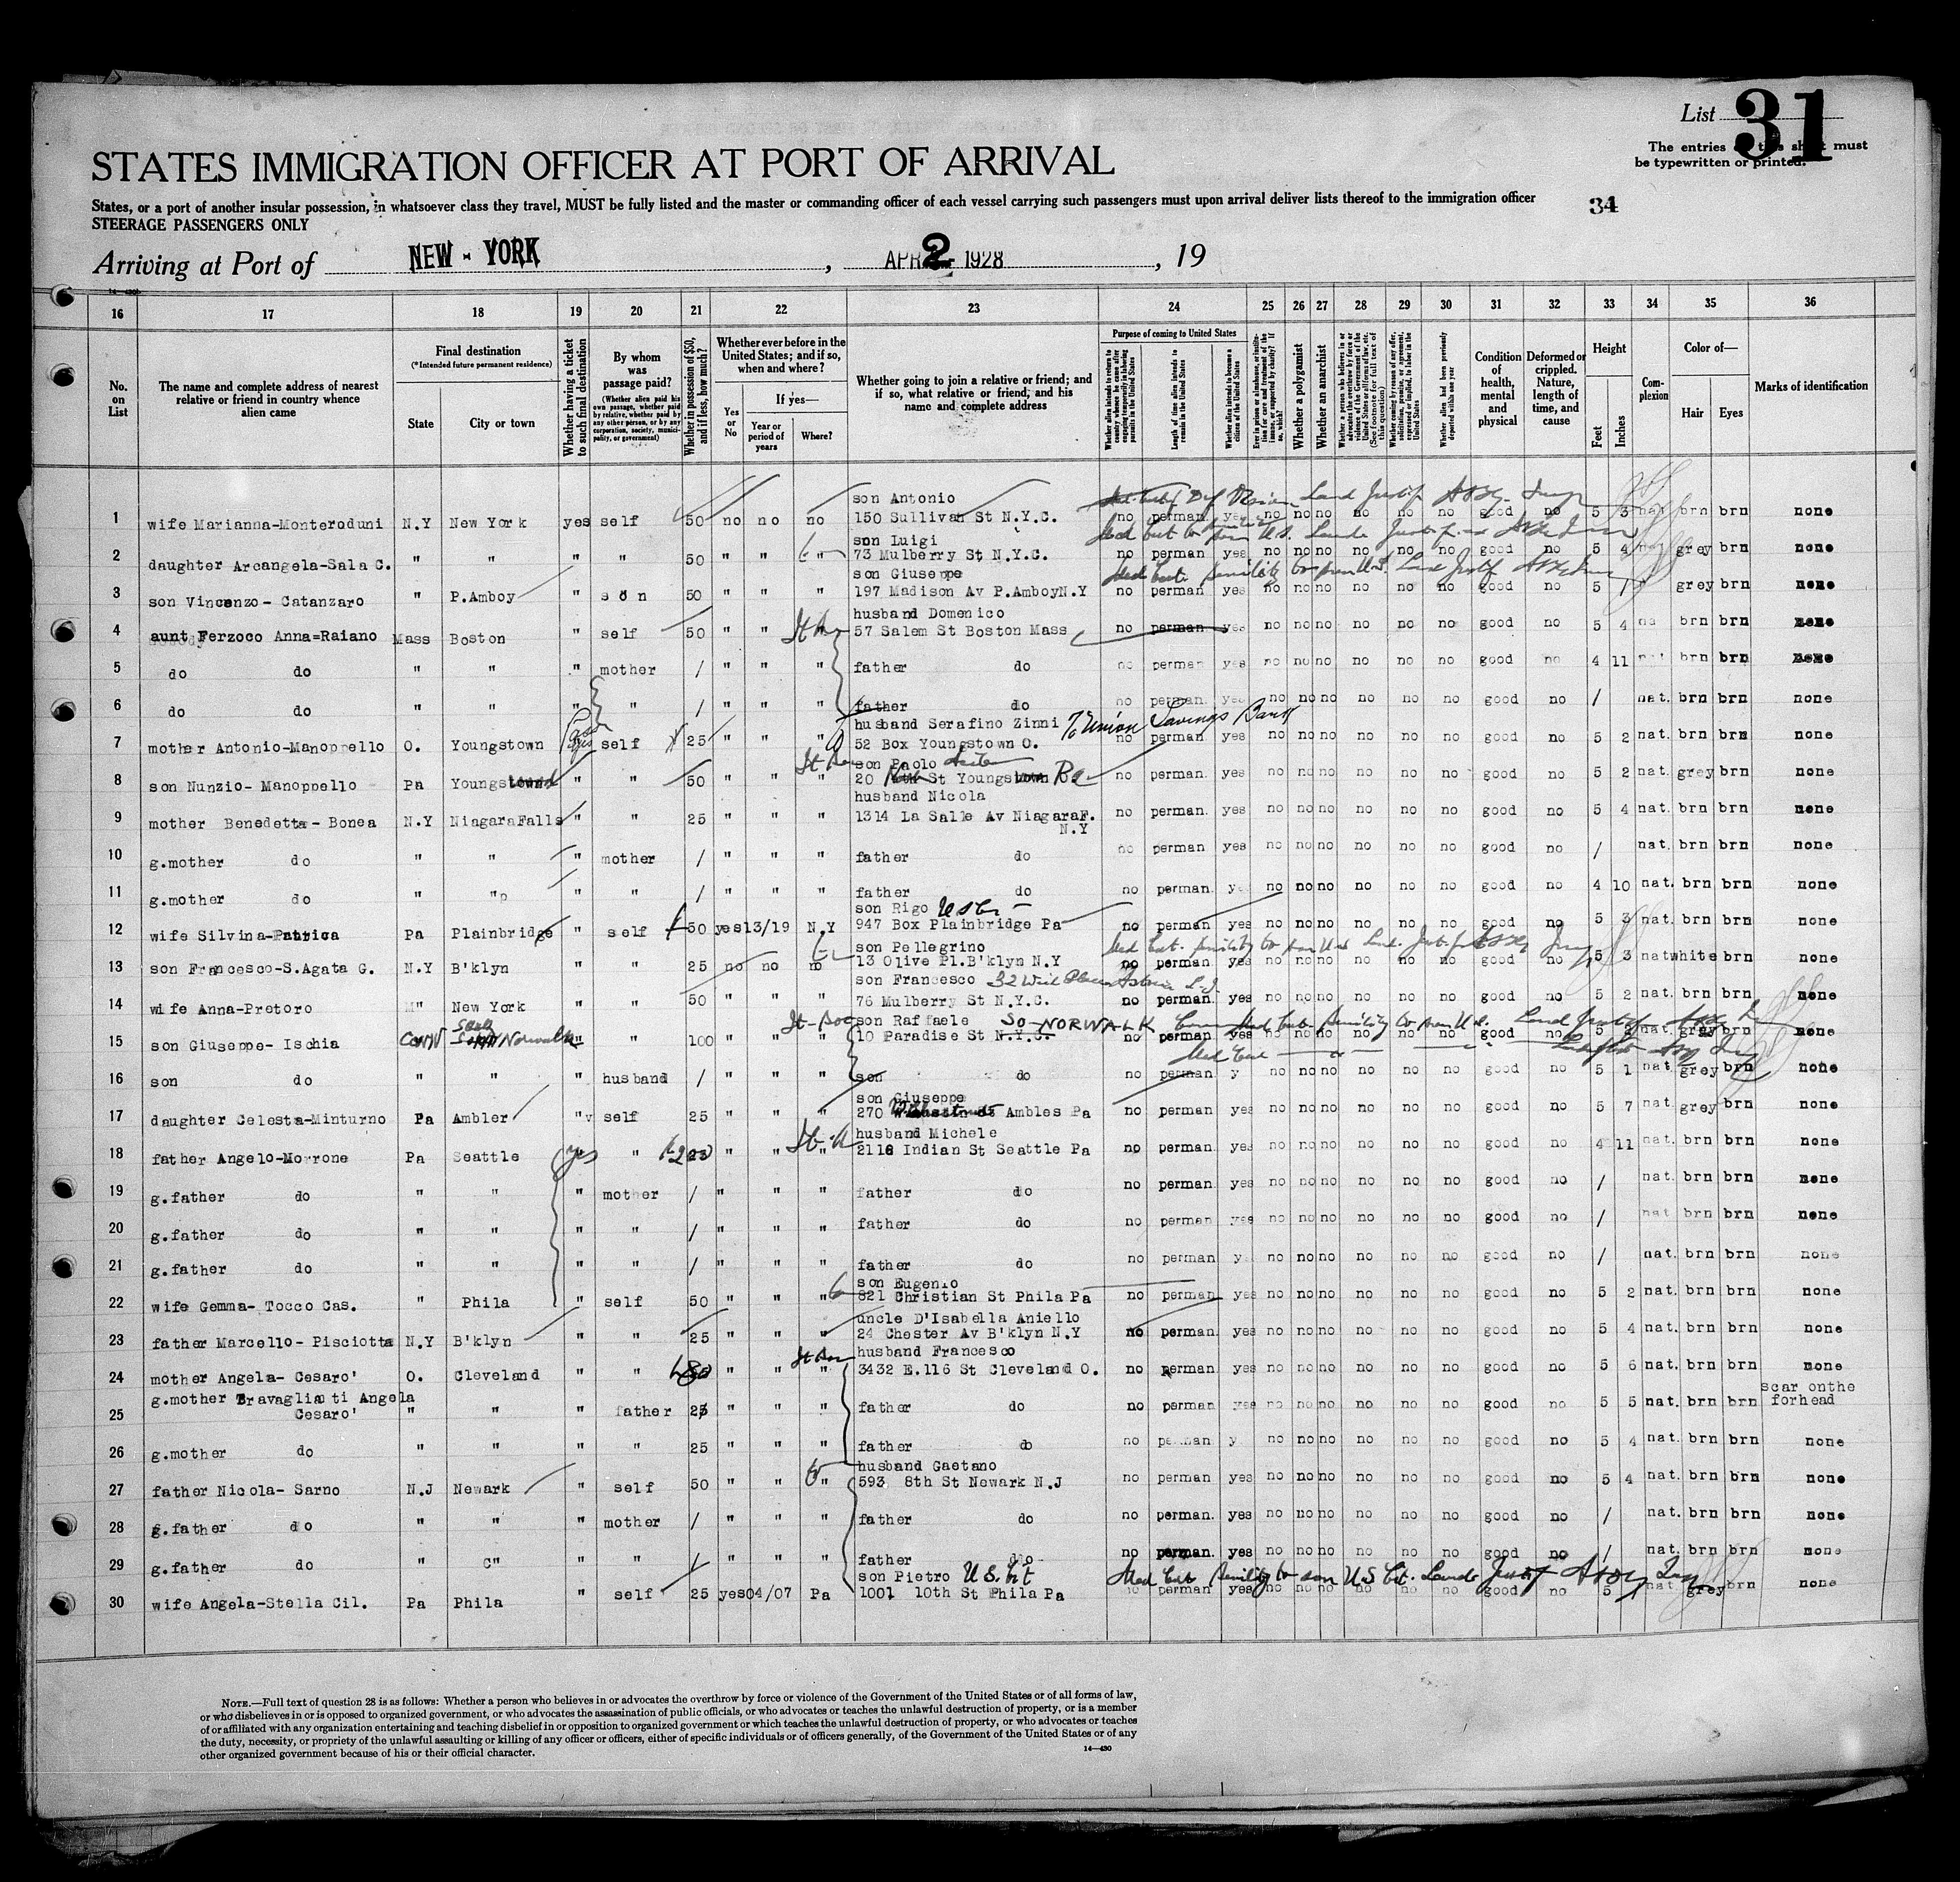 List 31
The entries on this sheet must
be typewritten or printed.
STATES IMMIGRATION OFFICER AT PORT OF ARRIVAL
States, or a port of another insular possession, in whatsoever class they travel, MUST be fully listed and the master or commanding officer of each vessel carrying such passengers must upon arrival deliver lists thereof to the immigration officer
34
STEERAGE PASSENGERS ONLY
Arriving at Port of NEW - YORK, APR 2 1928, 19
16 17 18 19 20 21 22 23 24 25 26 27 28 29 30 31 32 33 34 35 36
No. on List
The name and complete address of nearest relative or friend in country whence alien came
Final destination
(*Intended future permanent residence)
State
City or town
Whether having a ticket to such final destination
By whom was passage paid?
(Whether alien paid his own passage, whether paid by relative, whether paid by any other person, or by any corporation, society, municipality, or government)
Whether in possession of $50, and if less, how much?
Whether ever before in the United States; and if so, when and where?
Yes or No
If yes—
Year or period of years
Where?
Whether going to join a relative or friend; and if so, what relative or friend, and his name and complete address
Purpose of coming to United States
Length of time alien intends to remain in the United States
Whether alien intends to become a citizen of the United States
Whether a polygamist
Whether an anarchist
Condition of health, mental and physical
Deformed or crippled. Nature, length of time, and cause
Height
Feet
Inches
Complexion
Color of—
Hair
Eyes
Marks of identification
son Antonio
1 wife Marianna-Monteroduni N.Y New York yes self 50 no no no 150 Sullivan St N.Y.C. no perman yes no no no no no no good no 5 3 nat brn brn none
son Luigi
2 daughter Arcangela-Sala C. " " " " 50 " " " 73 Mulberry St N.Y.C. no perman yes no no no no no no good no 5 4 grey brn none
son Giuseppe
3 son Vincenzo- Catanzaro " P.Amboy " son 50 " " " 197 Madison Av P.AmboyN.Y no perman yes no no no no no no good no 5 7 grey brn none
husband Domenico
4 aunt Ferzoco Anna=Raiano Mass Boston " self 50 " " 57 Salem St Boston Mass no perman yes no no no no no no good no 5 4 na brn brn none
5 do do " " " mother / " " " father do no perman yes no no no no no no good no 4 11 brn brn none
6 do do " " " " / " " " father do no perman yes no no no no no no good no / nat. brn brn none
husband Serafino Zinni To Union Savings Bank
7 mother Antonio-Manoppello O. Youngstown yes self 25 " " " 52 Box Youngstown O. no perman yes no no no no no no good no 5 2 nat. brn brn none
son Paolo
8 son Nunzio- Manoppello Pa Youngs " " 50 " " " 20 St Youngs Pa no perman. yes no no no no no no good no 5 2 nat. grey brn none
husband Nicola
9 mother Benedetta- Bonea N.Y NiagaraFalls " " 25 " " " 1314 La Salle Av NiagaraF. no perman. yes no no no no no no good no 5 4 nat. brn brn none
N.Y
10 g.mother do " " " mother / " " " father do no perman yes no no no no no no good no / nat. brn brn none
11 g.mother do " " " " / " " " father do no perman. y no no no no no no good no 4 10 nat. brn brn none
son Rigo
12 wife Silvina-Patrica Pa Plainbridge " self 50 yes 13/19 N.Y 947 Box Plainbridge Pa no perman yes no no no no no no good no 5 3 nat. brn brn none
son Pellegrino
13 son Francesco-S.Agata G. N.Y B'klyn " " 25 no no no 13 Olive Pl.B'klyn N.Y no perman yes no no no no no no good no 5 3 nat white brn none
son Francesco
14 wife Anna-Pretoro " New York " " 50 " " " 76 Mulberry St N.Y.C. no perman yes no no no no no no good no 5 2 nat. brn brn none
son Raffaele SO-NORWALK
15 son Giuseppe- Ischia CONN South Norwalk " " 100 " " " 10 Paradise St N.Y.C. no perman yes no no no no no no good no 5 2 nat. grey brn none
16 son do " " " husband / " " " son do no perman y no no no no no no good no 5 1 nat grey brn none
son Giuseppe
17 daughter Celesta-Minturno Pa Ambler " self 25 " " " 270 Ambles Pa no perman yes no no no no no no good no 5 7 nat. grey brn none
husband Michele
18 father Angelo-Morrone Pa Seattle yes " " " " 2116 Indian St Seattle Pa no perman yes no no no no no no good no 4 11 nat. brn brn none
19 g.father do " " " mother / " " " father do no perman yes no no no no no no good no / nat. brn brn none
20 g.father do " " " " / " " " father do no perman yes no no no no no no good no / nat brn brn none
21 g.father do " " " " / " " " father do no perman. y no no no no no no good no / nat. brn brn none
son Eugenio
22 wife Gemma- Tocco Cas. " Phila " self 50 " " " 821 Christian St Phila Pa no perman yes no no no no no no good no 5 2 nat. brn brn none
uncle D'Isabella Aniello
23 father Marcello- Pisciotta N.Y B'klyn " " 25 " " " 24 Chester Av B'klyn N.Y no perman. yes no no no no no no good no 5 4 nat. brn brn none
husband Francesco
24 mother Angela- Cesaro' O. Cleveland " " " " " 3432 E.116 St Cleveland O. no perman yes no no no no no no good no 5 6 nat. brn brn none
25 g.mother Travaglianti Angela Cesaro' " " " father 25 " " " father do no perman yes no no no no no no good no 5 5 nat. brn brn scar onthe forhead
26 g.mother do " " " " 25 " " " father do no perman y no no no no no no good no 5 4 nat. brn brn none
husband Gaetano
27 father Nicola- Sarno N.J Newark " self 50 " " " 593 8th St Newark N.J no perman yes no no no no no no good no 5 4 nat. brn brn none
28 g.father do " " " mother / " " " father do no perman. yes no no no no no no good no / nat. brn brn none
29 g.father do " C" " " / " " " father do no perman. yes no no no no no no good no / nat. brn brn none
son Pietro U S. Cit
30 wife Angela-Stella Cil. Pa Phila " self 25 yes 04/07 Pa 1001 10th St Phila Pa no perman yes no no no no no no good no 5 nat grey brn none
NOTE.—Full text of question 28 is as follows: Whether a person who believes in or advocates the overthrow by force or violence of the Government of the United States or of all forms of law,
or who disbelieves in or is opposed to organized government, or who advocates the assassination of public officials, or who advocates or teaches the unlawful destruction of property, or is a member
of or affiliated with any organization entertaining and teaching disbelief in or opposition to organized government or which teaches the unlawful destruction of property, or who advocates or teaches
the duty, necessity, or propriety of the unlawful assaulting or killing of any officer or officers, either of specific individuals or of officers generally, of the Government of the United States or of any
other organized government because of his or their official character.
14—430